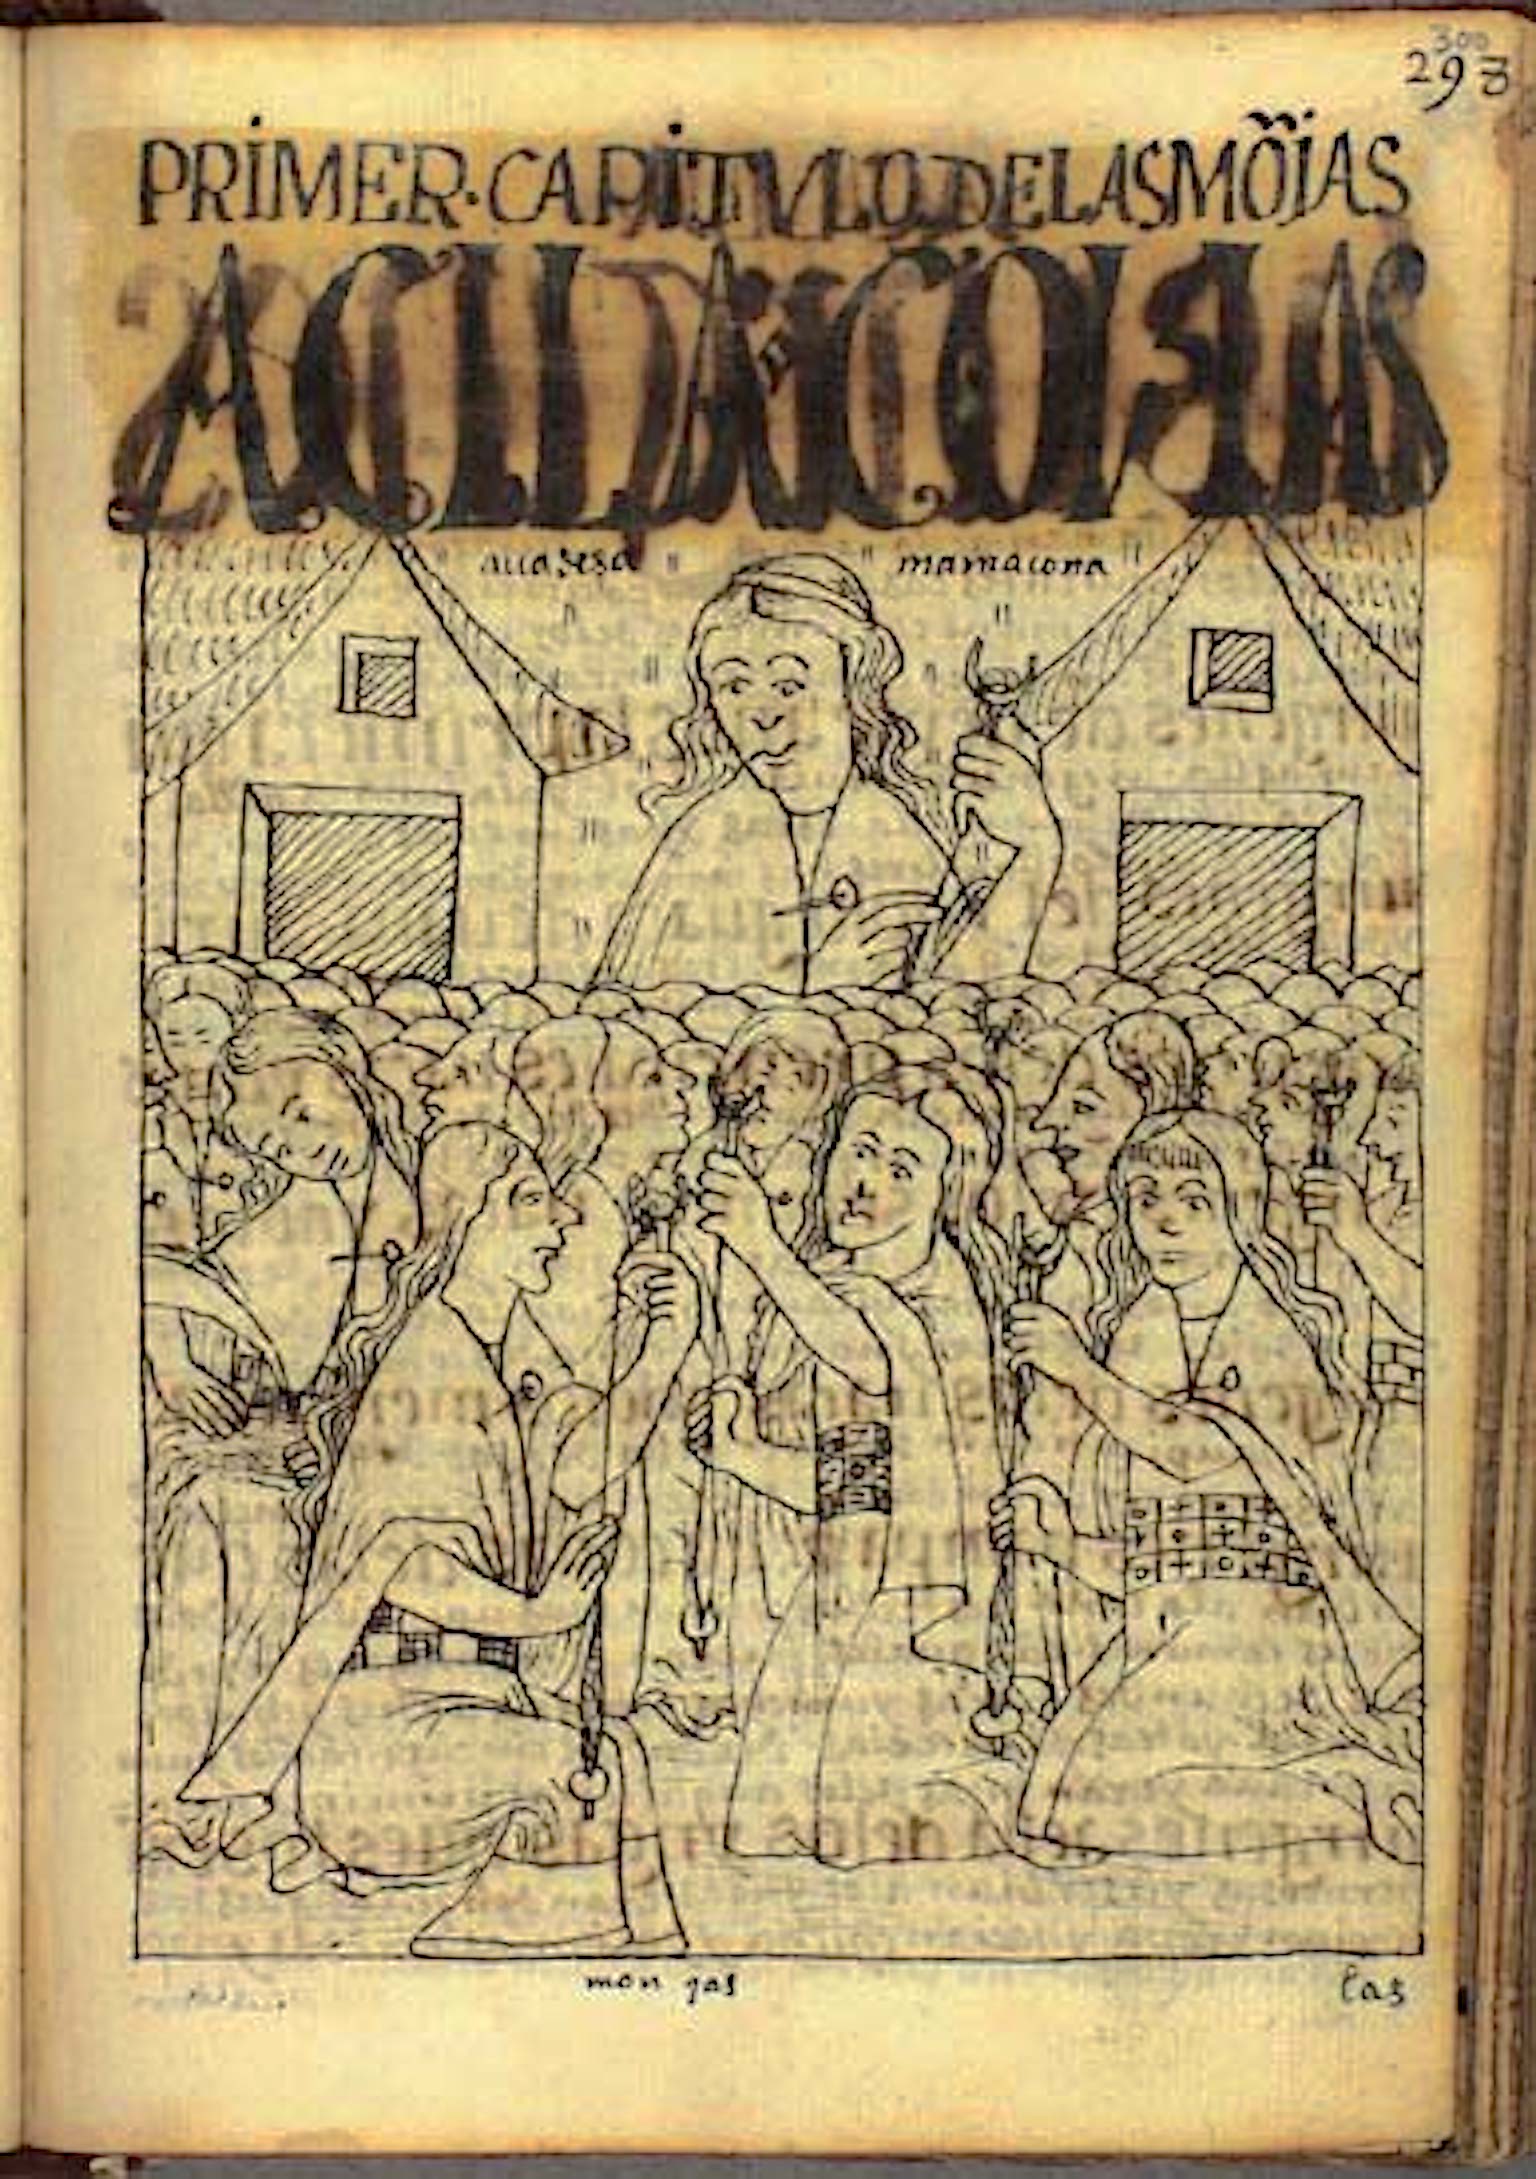 300
298
PRIMER·CAPITVLO DE LAS MŌIAS
ACLLACONAS
auapesqa mamacona
mon jas
las